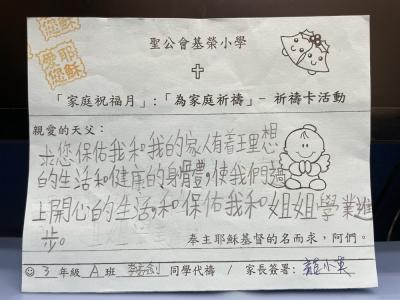 耶穌
愛您
耶穌
愛您
聖公會基榮小學
「家庭祝福月」:「為家庭祈禱」- 祈禱卡活動
親愛的天父：
求您保佑我和我的家人有着理想
的生活和健康的身體，使我們過
上開心的生活，和保佑我和姐姐學業進
步。
奉主耶穌基督的名而求，阿們。
3 年級 A 班 同學代禱 / 家長簽署：